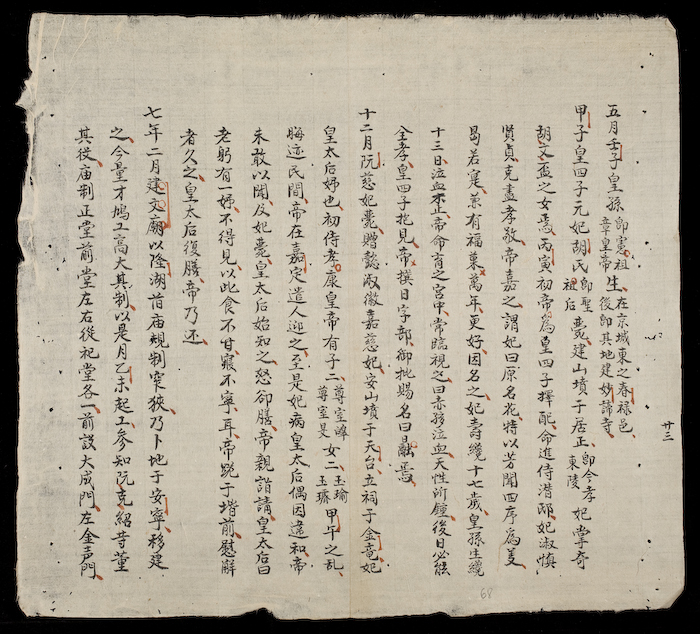 五月壬子皇孫即憲祖章皇帝生在京城東之春祿邑後即其地建妙諦寺
甲子皇四子元妃胡氏即聖祖后薨建山墳于居正即今孝東陵妃掌奇
胡文盃之女焉丙寅初帝爲皇四子擇配命進侍潛邸妃淑慎
賢貞克盡孝敬帝嘉之謂妃曰原名花特以芳聞四序爲美
曷若寔兼有福東萬年更好因名之妃壽纔十七歲皇孫生纔
十三日泣血不止帝命育之宮中常臨視之曰赤孩泣血天性所鐘後日必能
全孝皇四子抱見帝撰日字部御批賜名曰融焉
十二月阮慈妃薨贈懿淑徽嘉慈妃安山墳于天台立祠于金竜妃
皇太后姊也初侍孝康皇帝有子二尊室暐尊室旻女二玉瑜玉璹甲午之乱
晦迹民間帝在嘉定遣人迎之至是妃病皇太后偶因違和帝
未敢以聞及妃薨皇太后始知之怒卻膳帝親詣請皇太后曰
老躬有一姊不得見以此食不甘寢不寧耳帝跪于堦前慰解
者久之皇太后復膳帝乃还
七年二月建文廟以隆湖前庙規制窄狹乃卜地于安寧移建
之今量才鳩工高大其制以是月乙未起工參知阮克紹等董
其役庙制正堂前堂左右從祀堂各一前設大成門左金声門
廿三
68